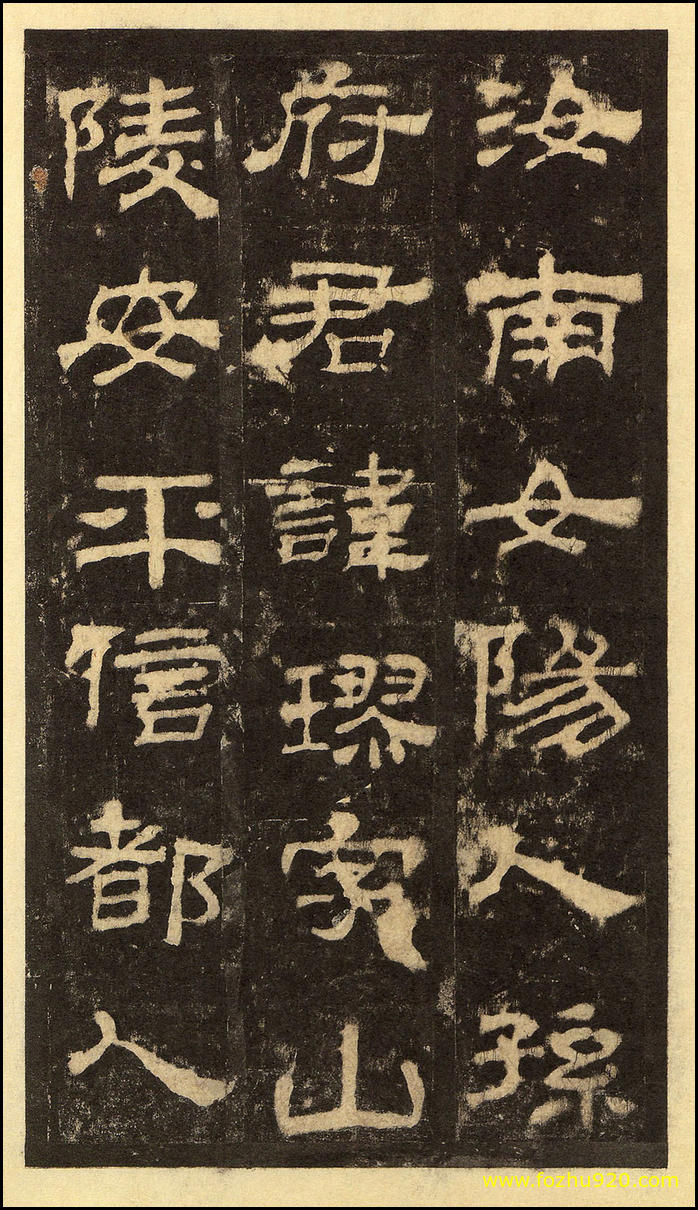 汝南女陽人孫
府君諱璆字山
陵安平信都人
www.fozhu920.com